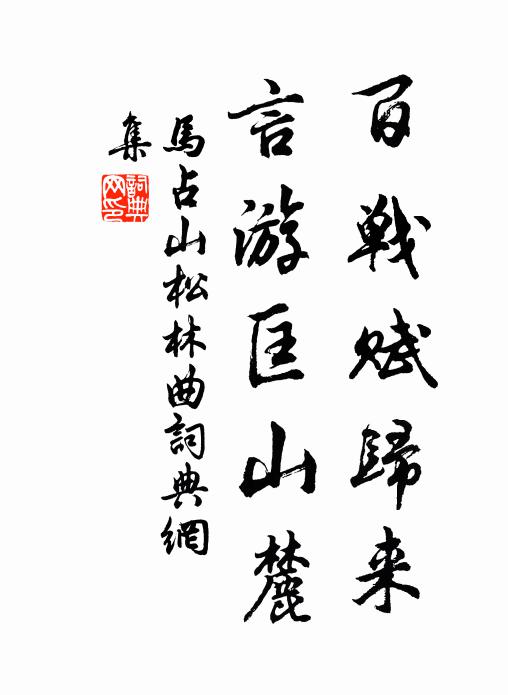 百戰赋歸来
言游匡山麓
馬占山松林曲詞典網
集
詞典网印